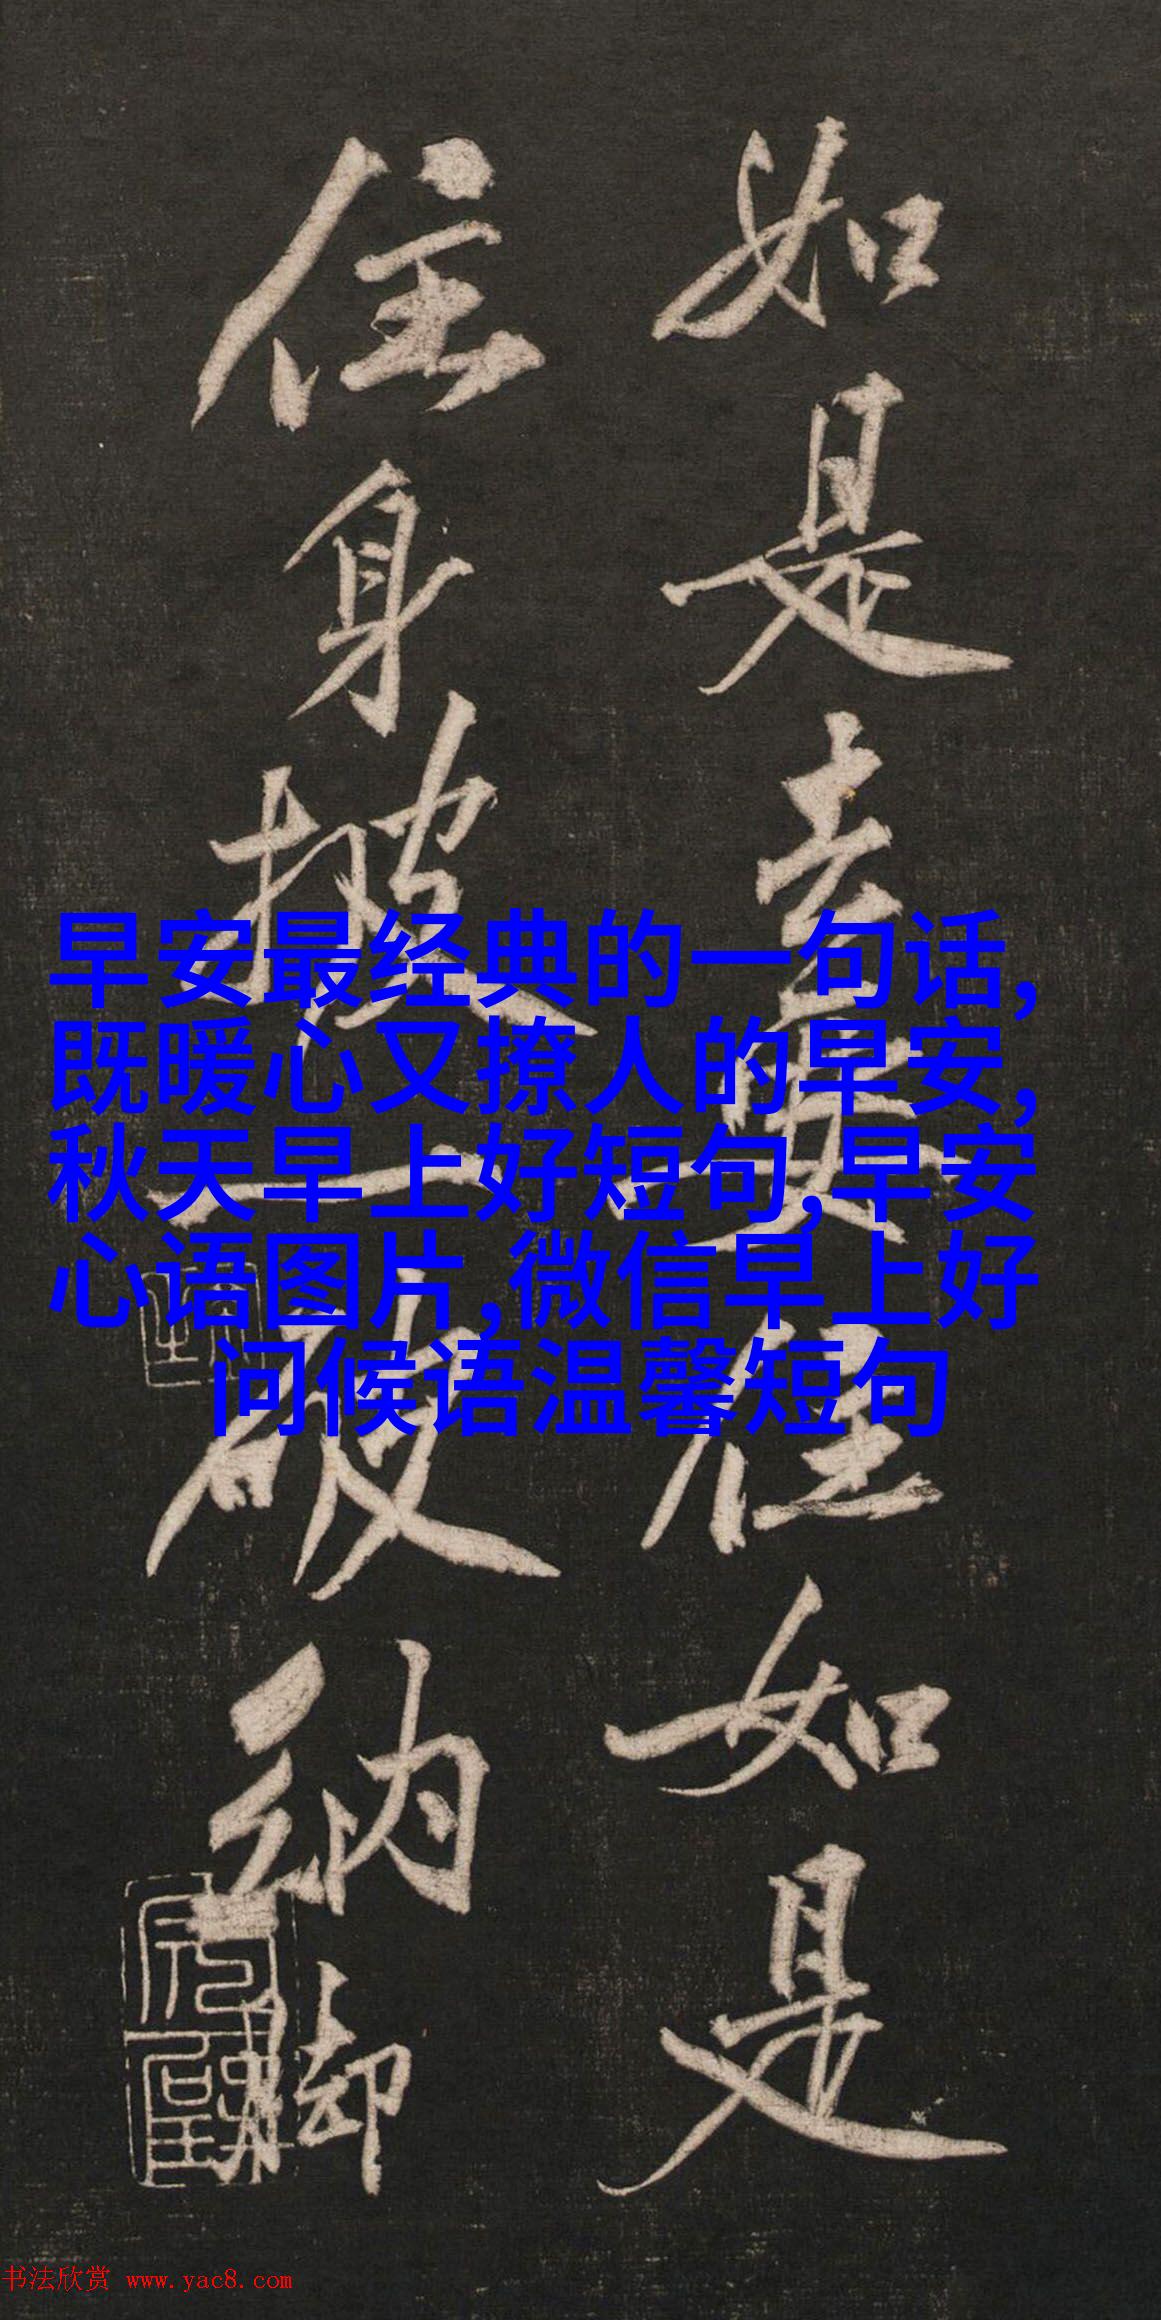 如是去要住如是
住身披一破纳脚
早安最经典的一句话,
既暖心又撩人的早安,
秋天早上好短句,早安
心语图片,微信早上好
问候语温馨短句
书法欣赏 www.yac8.com